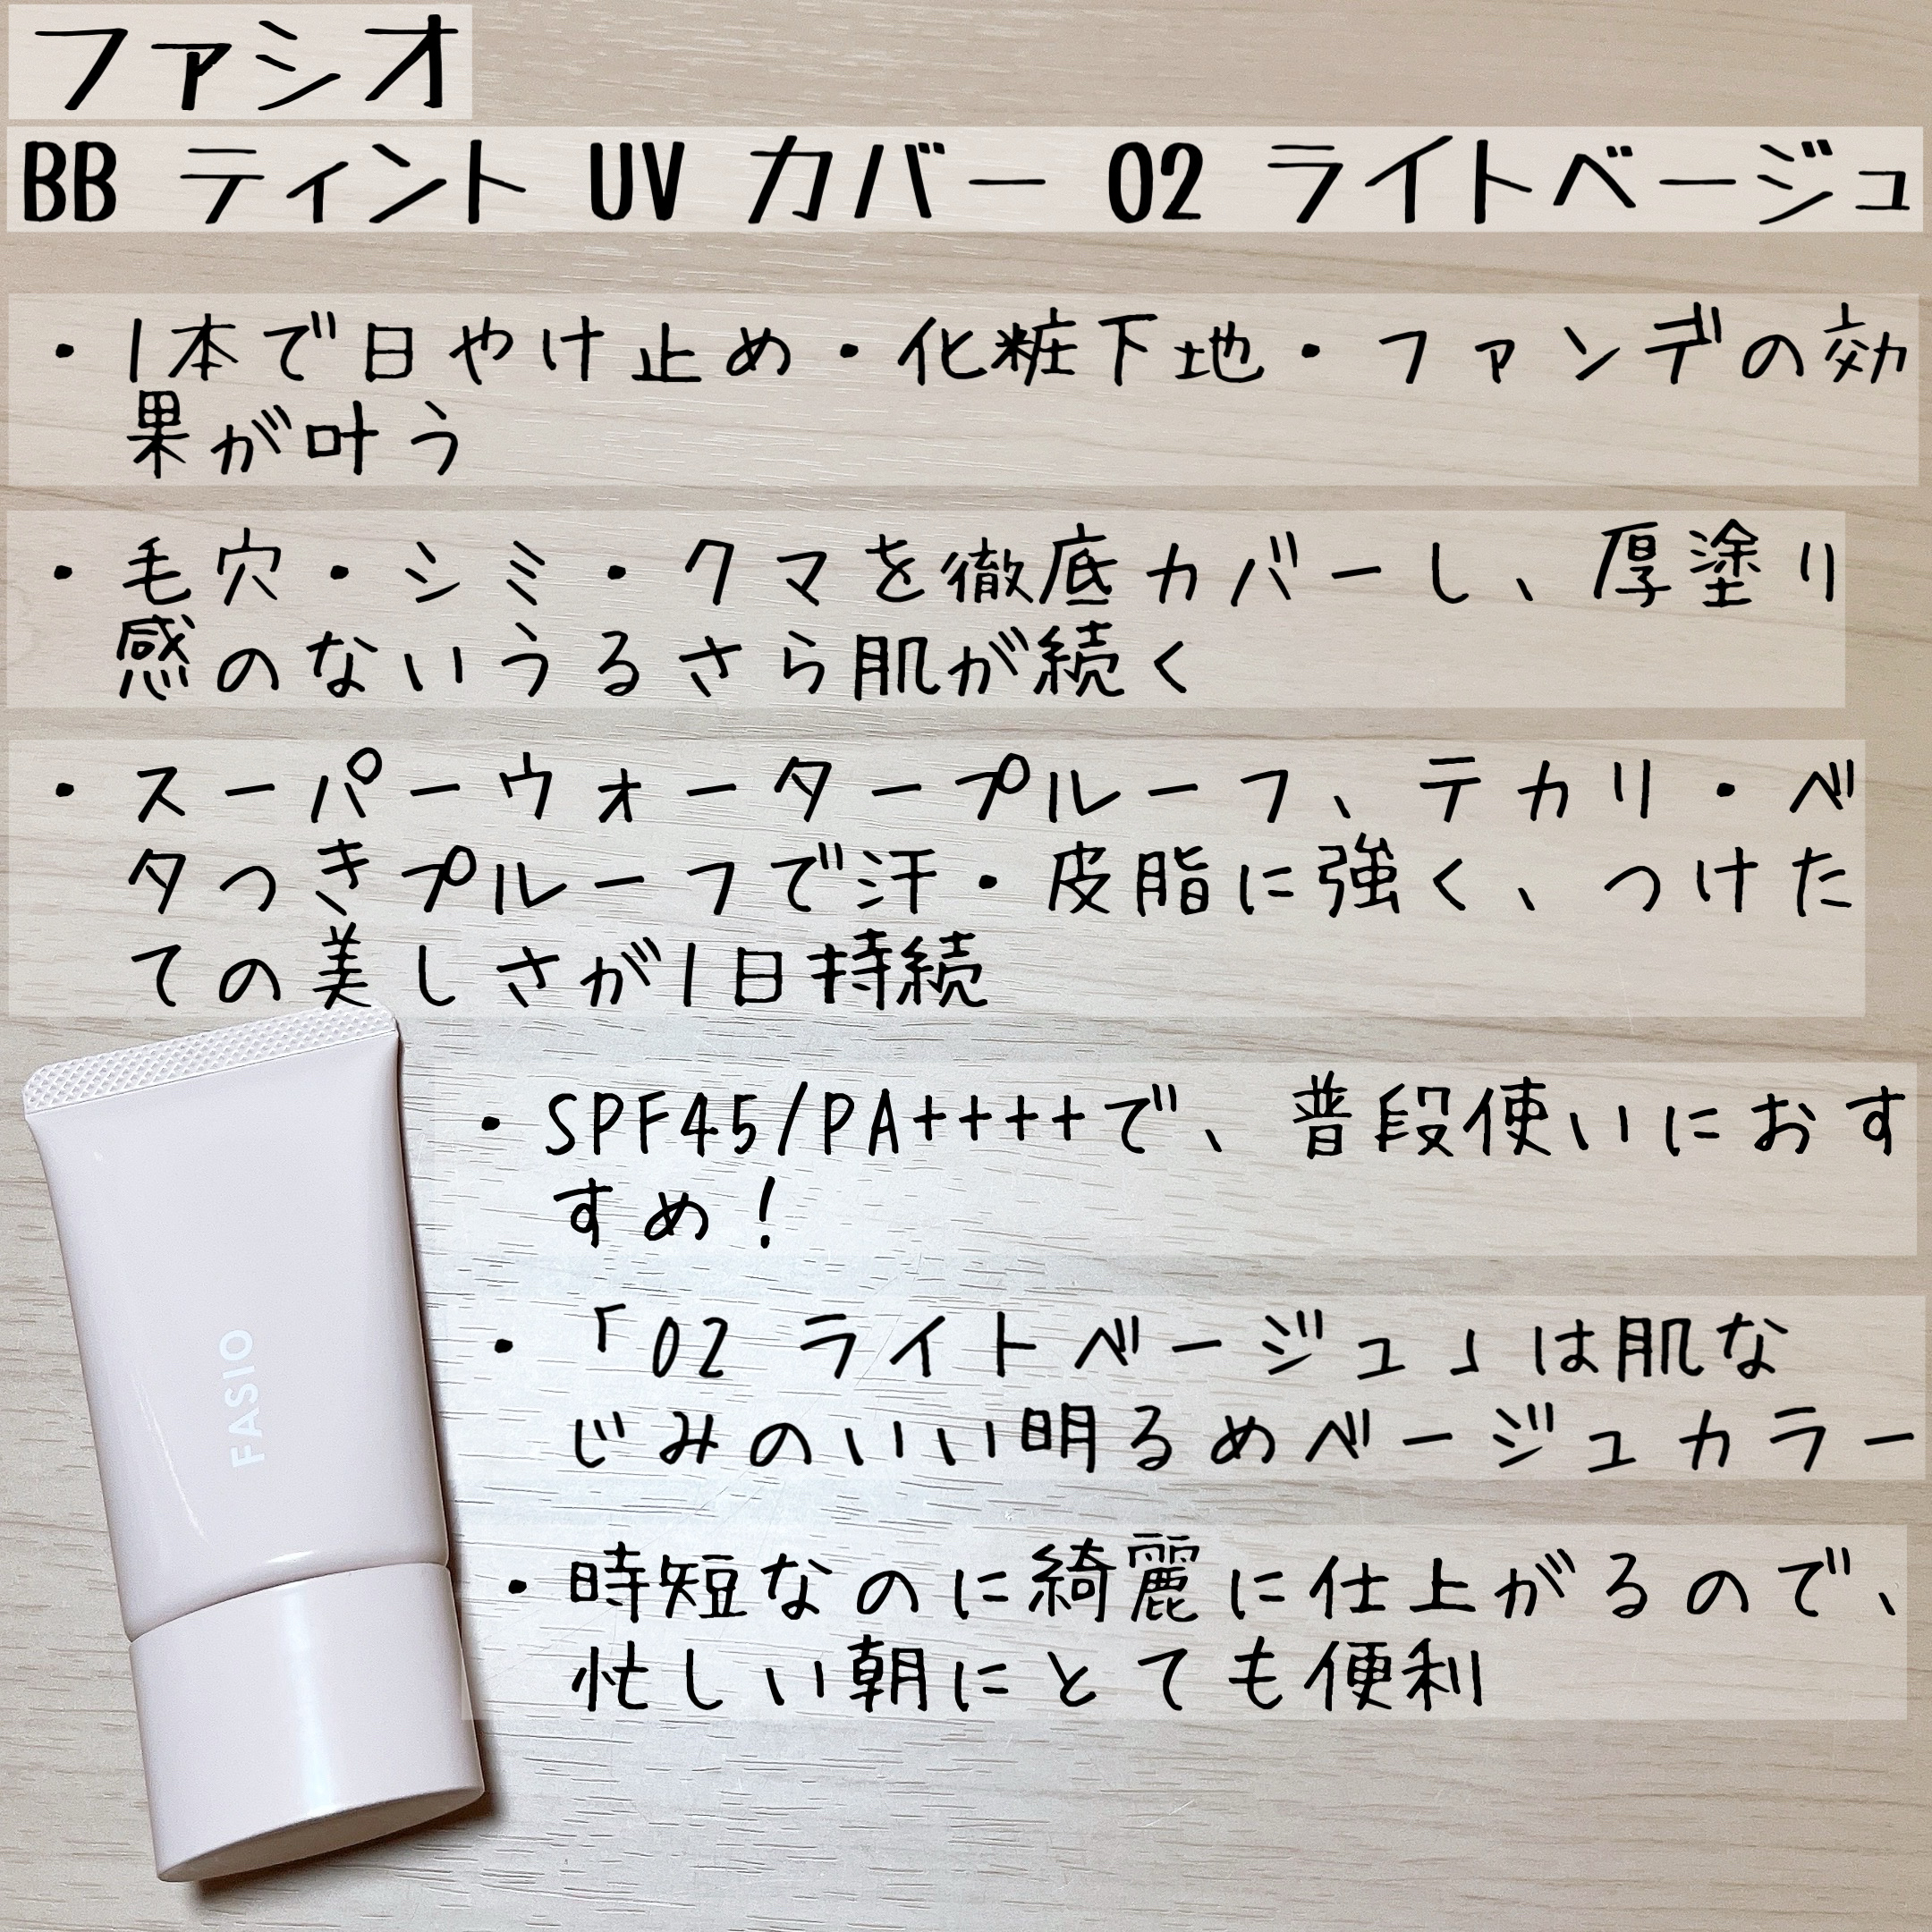 ファシオ
BB ティント UV カバー 02 ライトベージュ
・1本で日やけ止め・化粧下地・ファンデの効
果が叶う
・毛穴・シミ・クマを徹底カバーし、厚塗り
感のないうるさら肌が続く
・スーパーウォータープルーフ、テカリ・ベ
タつきプルーフで汗・皮脂に強く、つけた
ての美しさが1日持続
・SPF45/PA++++で、普段使いにおす
すめ！
・「02 ライトベージュ」は肌な
じみのいい明るめベージュカラー
・時短なのに綺麗に仕上がるので、
忙しい朝にとても便利
FASIO